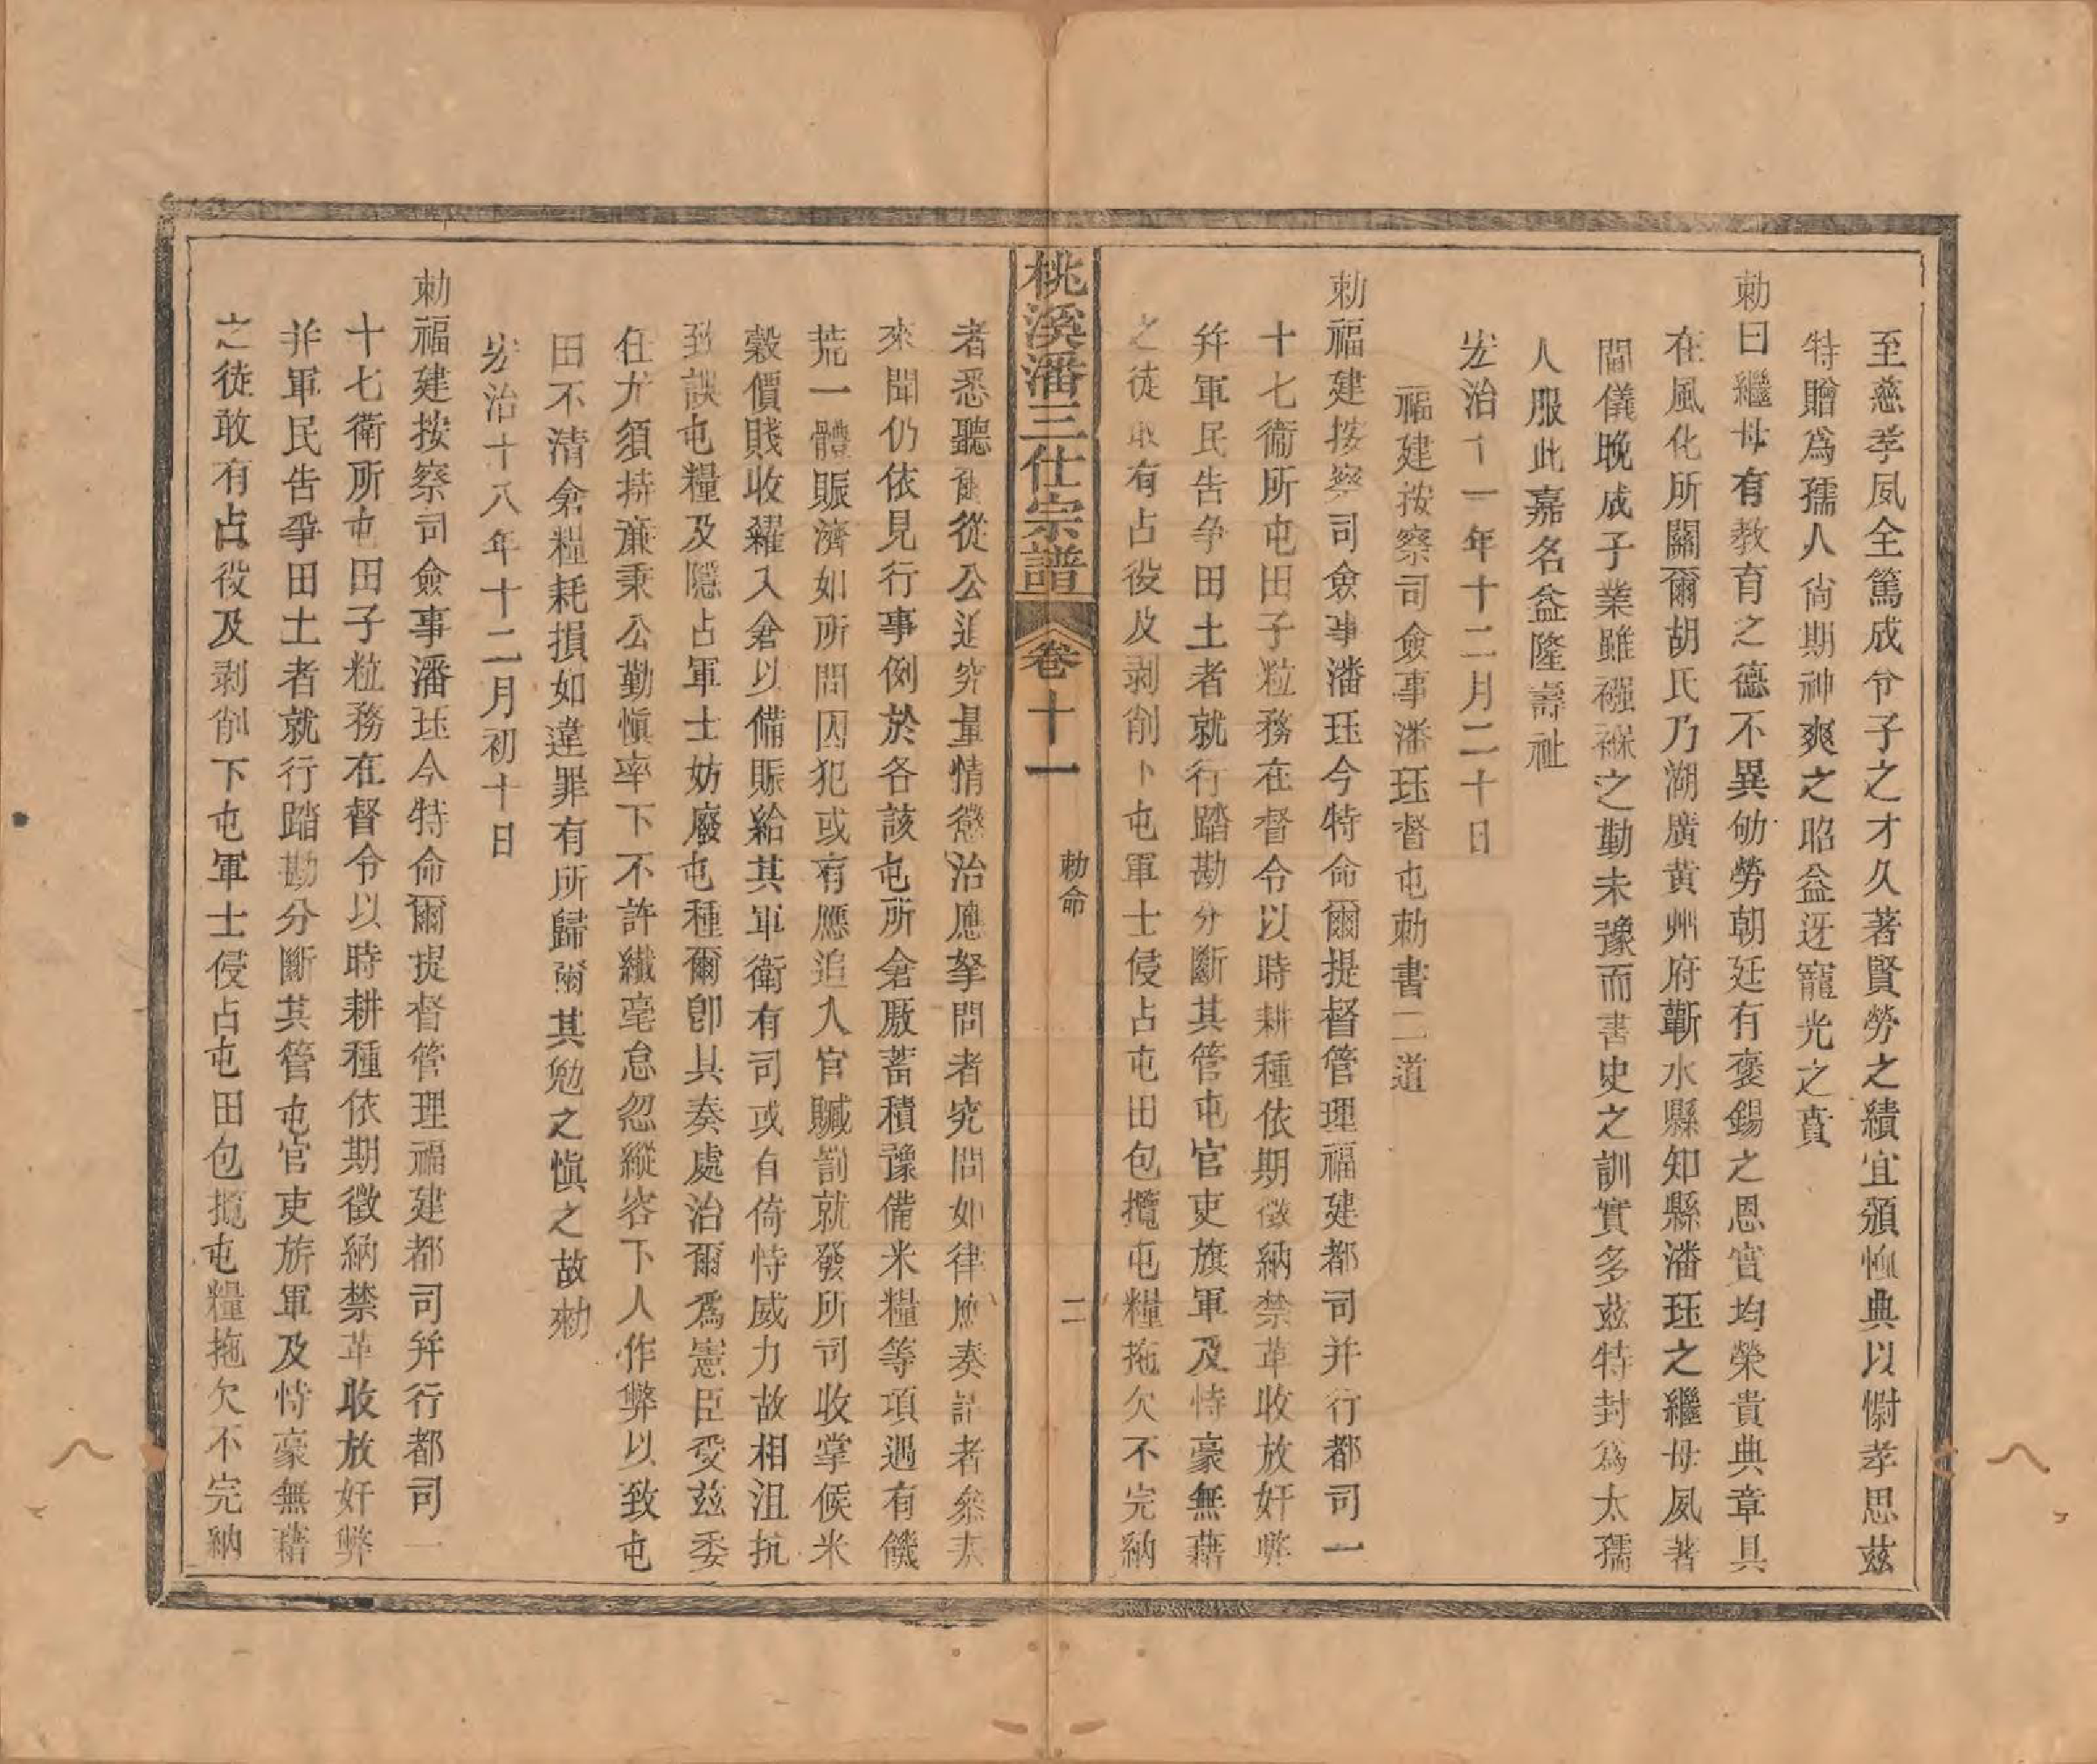 至慈孝夙全篤成令子之才久著賢勞之績宜頒恤典以慰孝思茲
特贈爲孺人尙期神爽之昭益迓寵光之賁
勅曰繼母有教育之德不異劬勞朝廷有褒錫之恩實均榮貴典章具
在風化所關爾胡氏乃湖廣黃州府蘄水縣知縣潘珏之繼母夙著
閫儀晚成子業雖襁褓之勤未豫而書史之訓實多茲特封爲太孺
人服此嘉名益隆壽祉
宏治十一年十二月二十日
福建按察司僉事潘珏督屯勅書二道
勅福建按察司僉事潘珏今特命爾提督管理福建都司并行都司一
十七衞所屯田子粒務在督令以時耕種依期徵納禁革收放奸弊
幷軍民告爭田土者就行踏勘分斷其管屯官吏旗軍及恃豪無藉
之徒敢有占役及剥削下屯軍士侵占屯田包攬屯糧拖欠不完納
桃溪潘三仕宗譜 卷十一 勅命 二
者悉聽爾從公追究量情懲治應拏問者究問如律應奏請者叅奏
來聞仍依見行事例於各該屯所倉厫蓄積豫備米糧等項遇有饑
荒一體賑濟如所問囚犯或有應追入官贓罰就發所司收掌候米
穀價賤收糴入倉以備賑給其軍衛有司或有倚恃威力故相沮抗
致誤屯糧及隱占軍士妨廢屯種爾卽具奏處治爾爲憲臣受茲委
任尤須持廉秉公勤愼率下不許纖毫怠忽縱容下人作弊以致屯
田不清倉糧耗損如違罪有所歸爾其勉之愼之故勅
宏治十八年十二月初十日
勅福建按察司僉事潘珏今特命爾提督管理福建都司幷行都司一
十七衛所屯田子粒務在督令以時耕種依期徵納禁革收放奸弊
幷軍民告爭田土者就行踏勘分斷其管屯官吏旂軍及恃豪無藉
之徒敢有占役及剥削下屯軍士侵占屯田包攬屯糧拖欠不完納